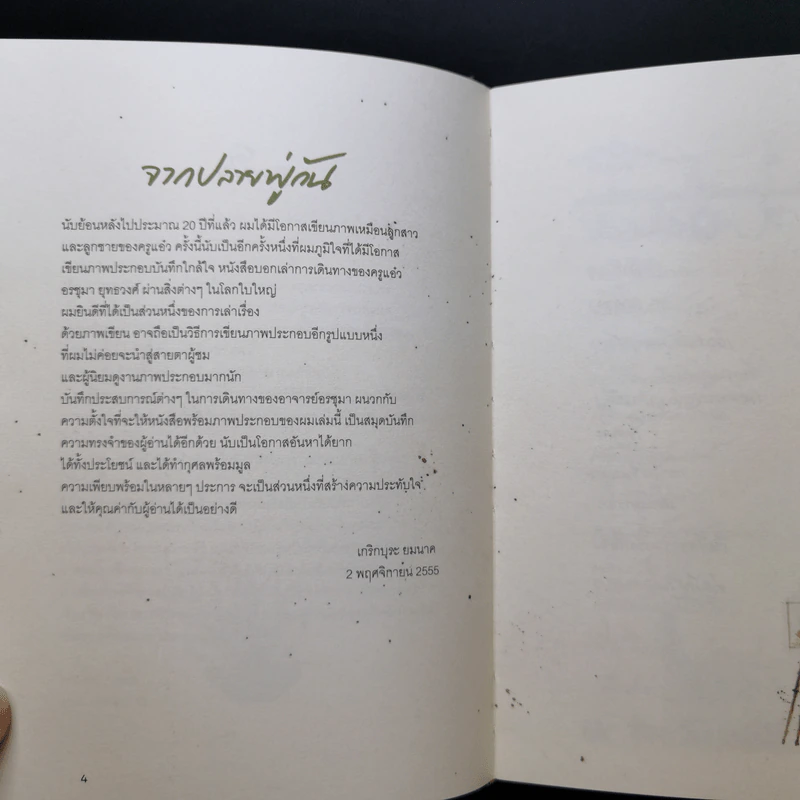 จากปลายพู่กัน
นับย้อนหลังไปประมาณ 20 ปีที่แล้ว ผมได้มีโอกาสเขียนภาพเหมือนลูกสาว
และลูกชายของครูแอ๋ว ครั้งนี้นับเป็นอีกครั้งหนึ่งที่ผมภูมิใจที่ได้มีโอกาส
เขียนภาพประกอบบันทึกใกล้ใจ หนังสือบอกเล่าการเดินทางของครูแอ๋ว
อรชุมา ยุทธวงศ์ ผ่านสิ่งต่างๆ ในโลกใบใหญ่
ผมยินดีที่ได้เป็นส่วนหนึ่งของการเล่าเรื่อง
ด้วยภาพเขียน อาจถือเป็นวิธีการเขียนภาพประกอบอีกรูปแบบหนึ่ง
ที่ผมไม่ค่อยจะนำสู่สายตาผู้ชม
และผู้นิยมดูงานภาพประกอบมากนัก
บันทึกประสบการณ์ต่างๆ ในการเดินทางของอาจารย์อรชุมา ผนวกกับ
ความตั้งใจที่จะให้หนังสือพร้อมภาพประกอบของผมเล่มนี้ เป็นสมุดบันทึก
ความทรงจำของผู้อ่านได้อีกด้วย นับเป็นโอกาสอันหาได้ยาก
ได้ทั้งประโยชน์ และได้ทำกุศลพร้อมมูล
ความเพียบพร้อมในหลายๆ ประการ จะเป็นส่วนหนึ่งที่สร้างความประทับใจ
และให้คุณค่ากับผู้อ่านได้เป็นอย่างดี
เกริกบุระ ยมนาค
2 พฤศจิกายน 2555
4